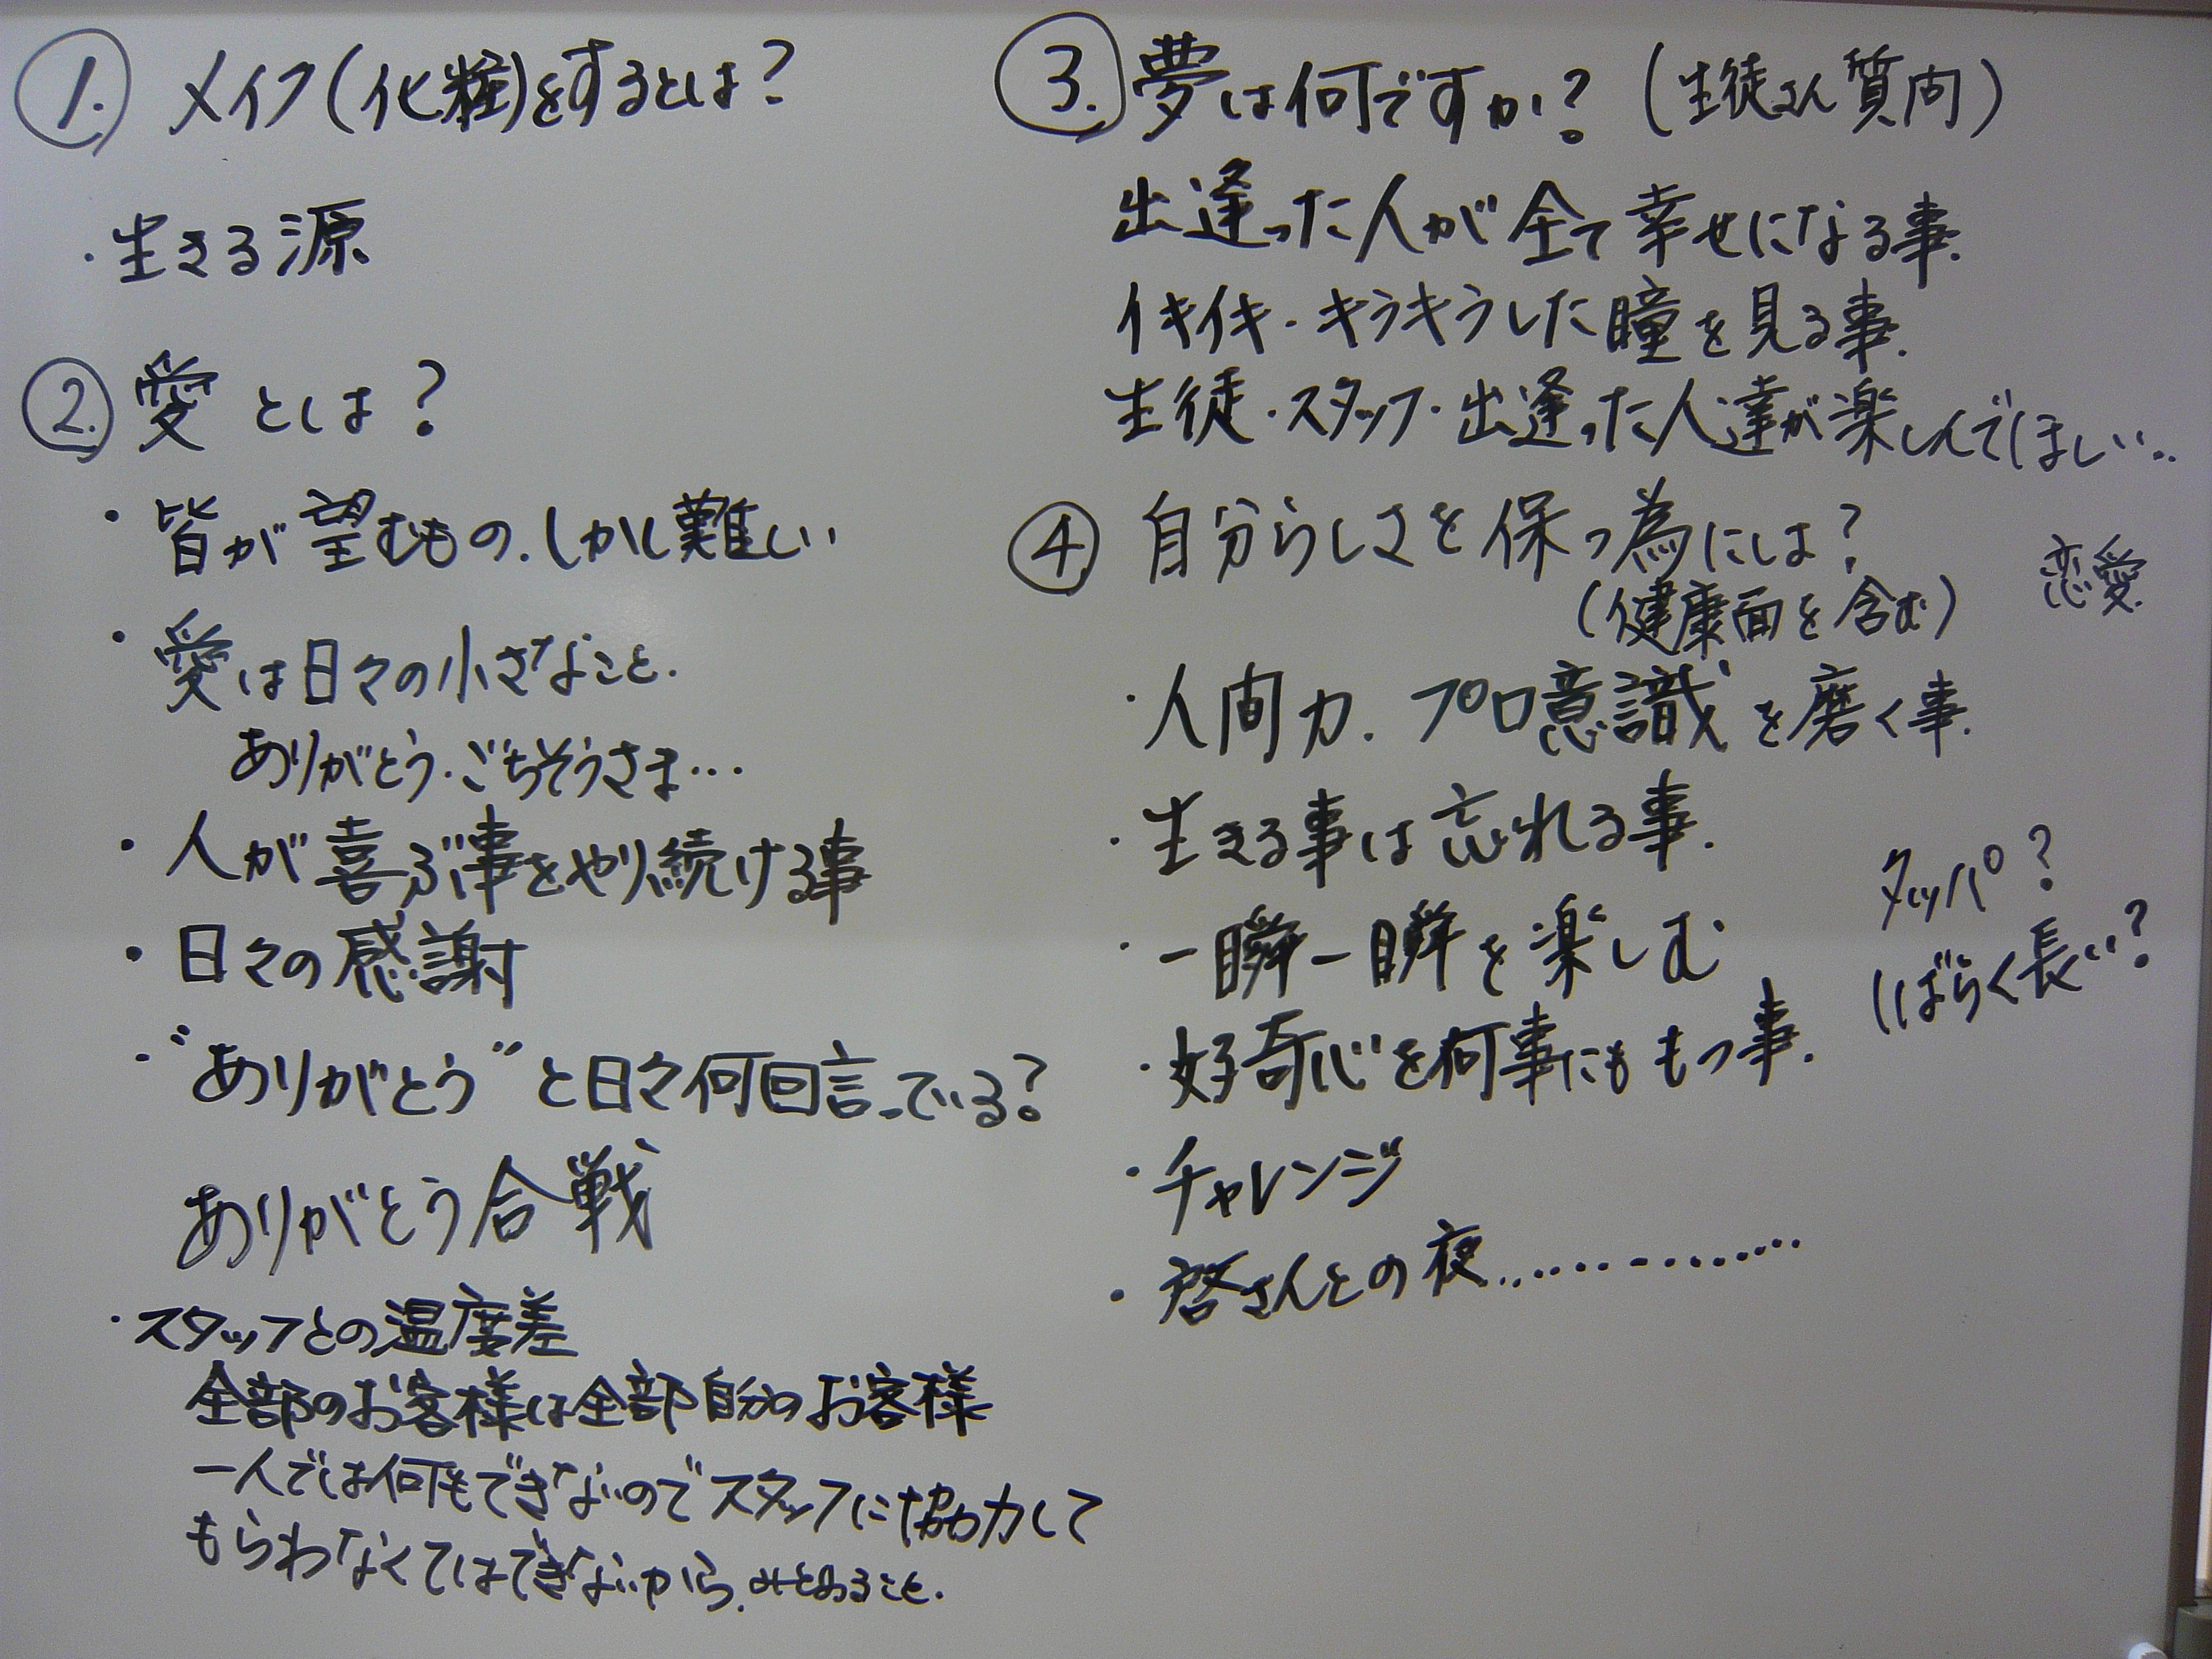 1. メイク(化粧)をするとは?
・生きる源
2. 愛とは?
・皆が望むもの.しかし難しい
・愛は日々の小さなこと.
ありがとう.ごちそうさま…
・人が喜ぶ事をやり続ける事
・日々の感謝
・"ありがとう"と日々何回言っている?
ありがとう合戦
・スタッフとの温度差
全部のお客様は全部自分のお客様
一人では何もできないのでスタッフに協力して
もらわなくてはできないから.みとめること.
3. 夢は何ですか?(生徒さん質問)
出逢った人が全て幸せになる事.
イキイキ・キラキラした瞳を見る事.
生徒・スタッフ・出逢った人達が楽しんでほしい..
4 自分らしさを保つ為には?
(健康面を含む)
恋愛.
・人間力.プロ意識を磨く事.
・生きる事は忘れる事.
・一瞬一瞬を楽しむ
・好奇心を何事にももつ事.
・チャレンジ
・啓さんとの夜..............
タッパ?
しばらく長い?